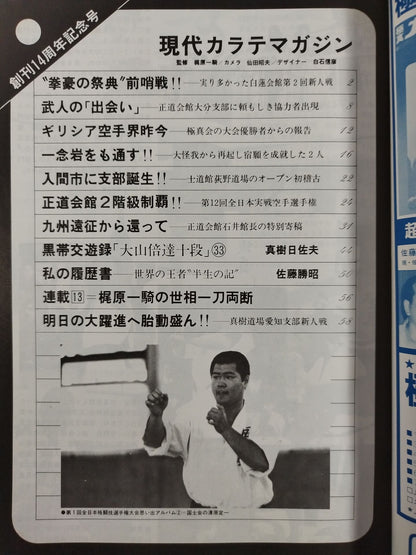 創刊14周年記念号
現代カラテマガジン
監修 梶原一騎/カメラ 仙田昭夫/デザイナー 白石信彦
"拳豪の祭典"前哨戦!!―実り多かった白蓮会館第2回新人戦 2
武人の「出会い」―正道会館大分支部に頼もしき協力者出現 8
ギリシア空手界昨今―極真会の大会優勝者からの報告 12
一念岩をも通す!!―大怪我から再起し宿願を成就した2人 16
入間市に支部誕生!!―士道館荻野道場のオープン初稽古 22
正道会館2階級制覇!!―第12回全日本実戦空手選手権 24
九州遠征から還って―正道会館石井館長の特別寄稿 31
黒帯交遊録「大山倍達十段」㉝ 真樹日佐夫 44
私の履歴書―世界の王者"半生の記" 佐藤勝昭 50
連載13=梶原一騎の世相一刀両断 56
明日の大躍進へ胎動盛ん!!―真樹道場愛知支部新人戦 58
●第1回全日本格闘技選手権大会思い出アルバム②―国士会の清原定一
超
佐藤
★